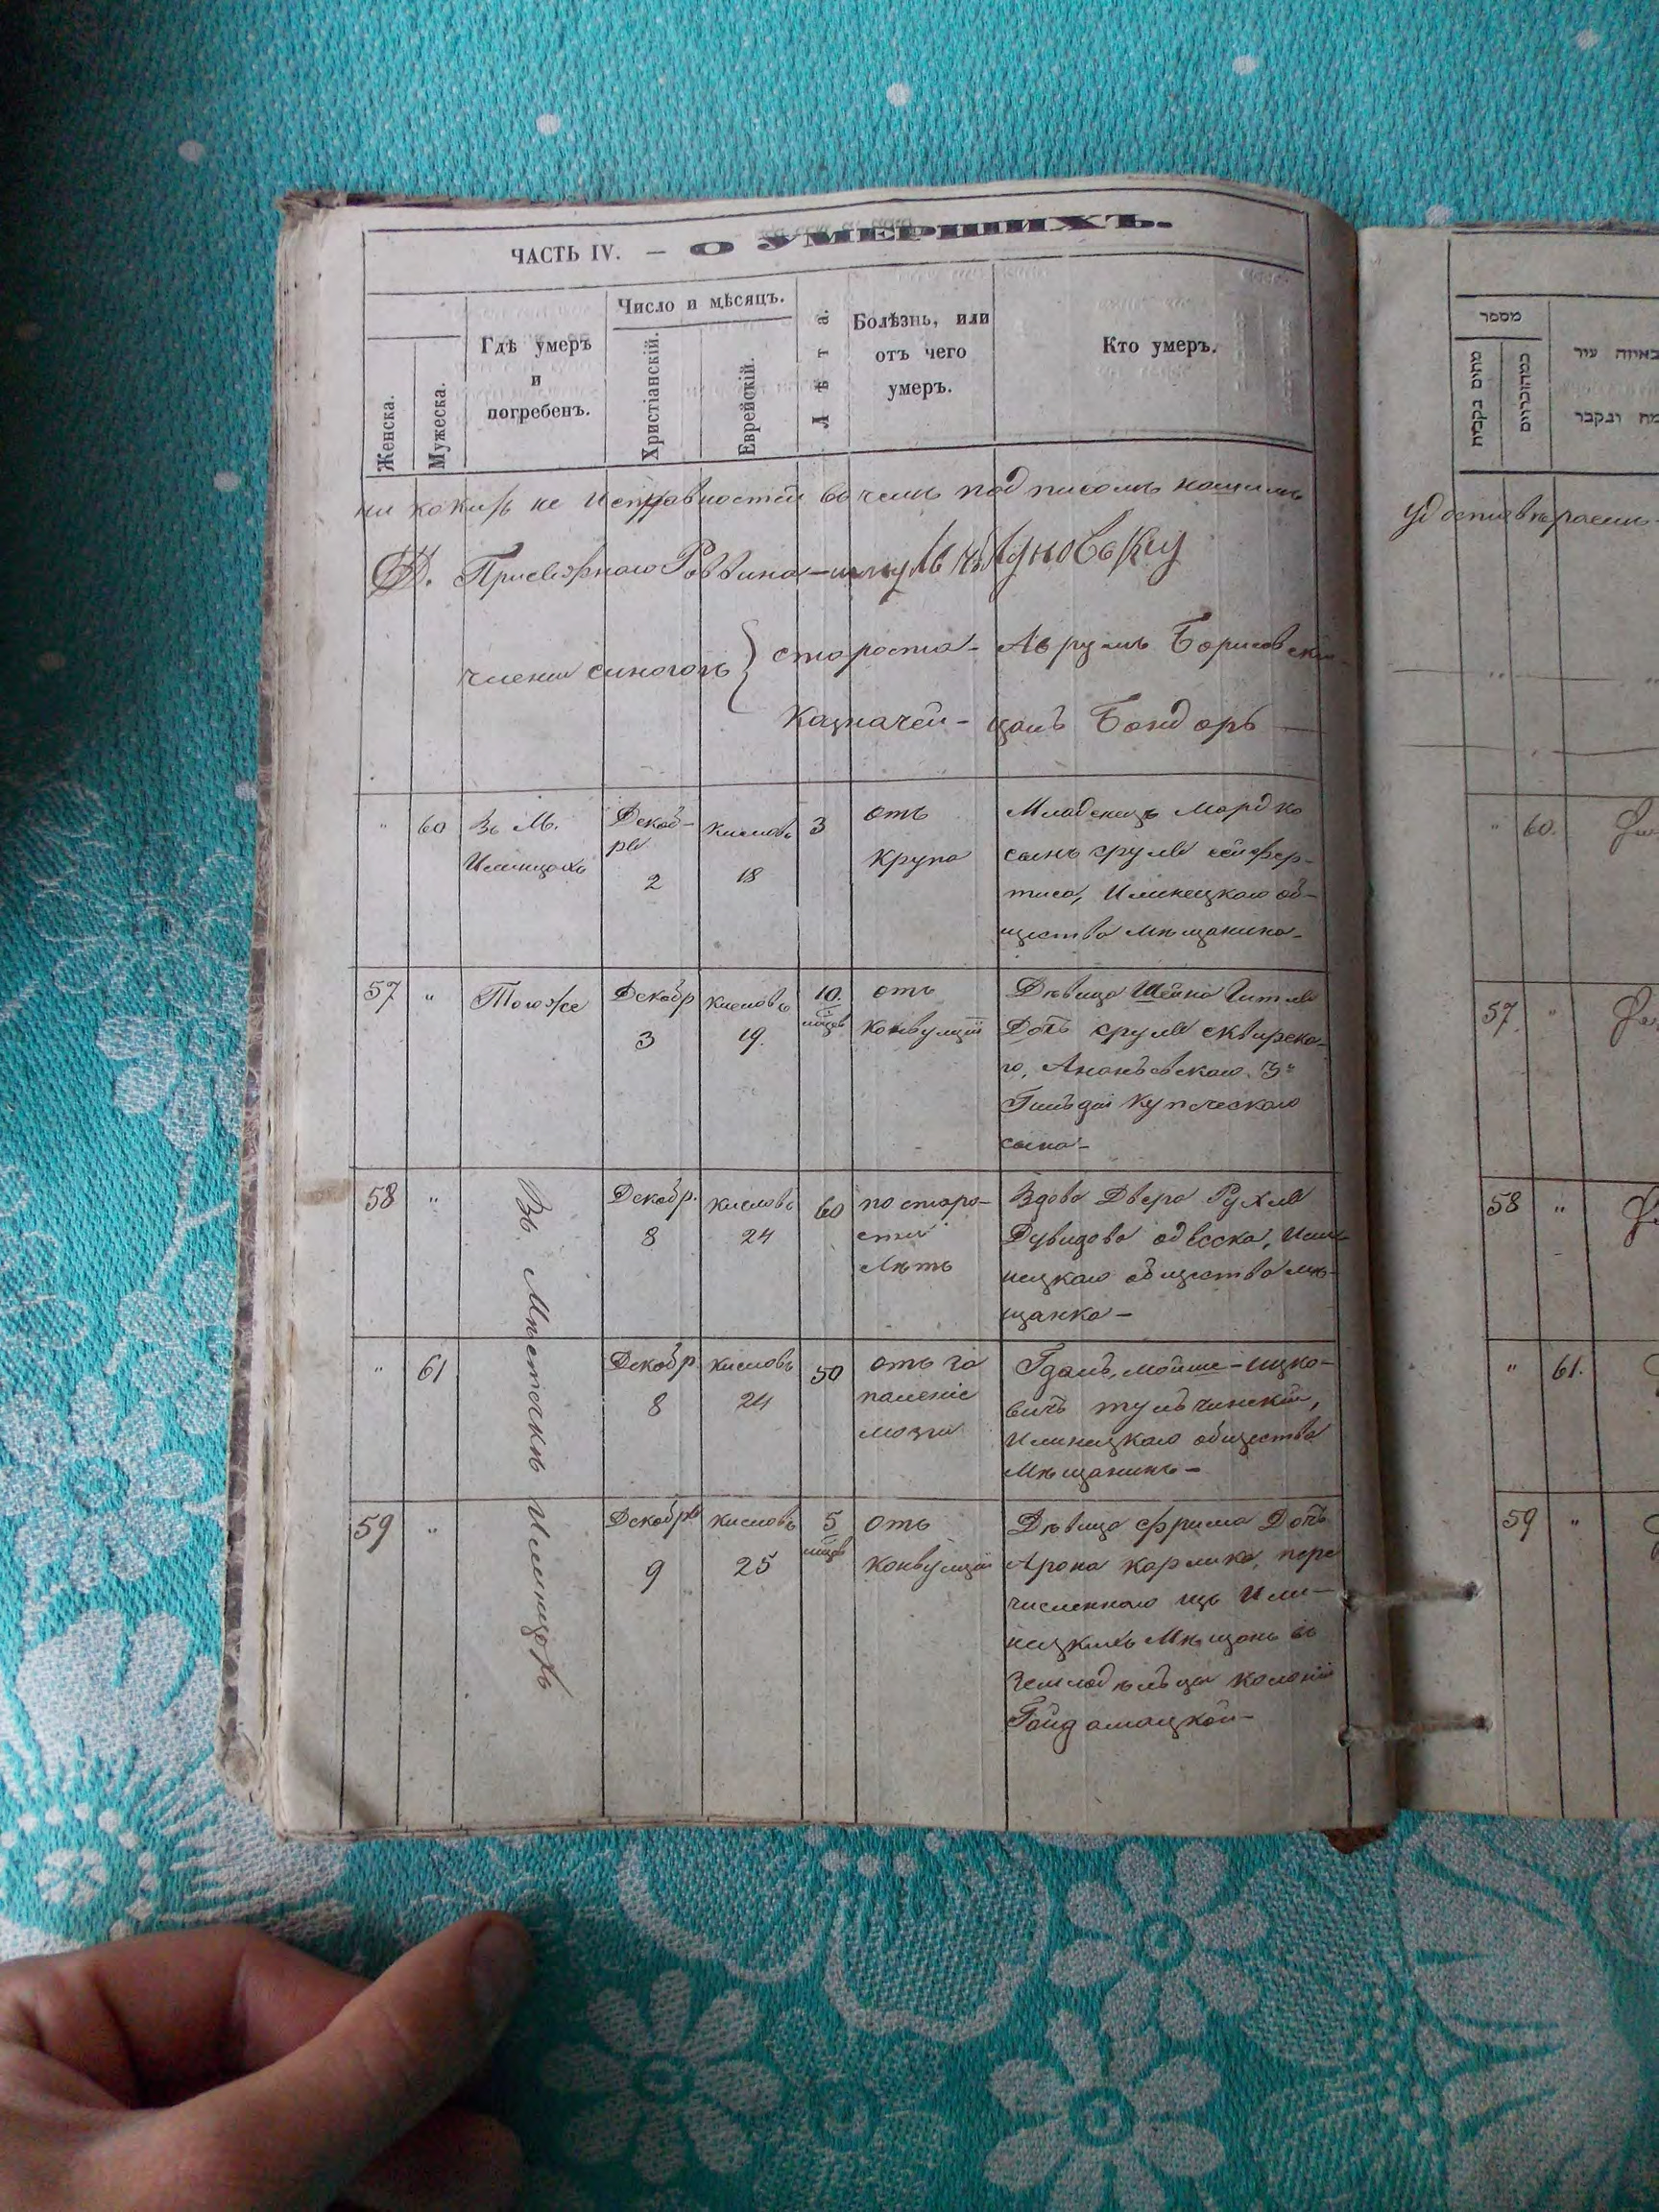 ЧАСТЬ IV. — О УМЕРШИХЪ.
Женска.
Мужеска.
Гдѣ умеръ
и
погребенъ.
Число и мѣсяцъ.
Христіанскій.
Еврейскій.
Лѣта.
Болѣзнь, или
отъ чего
умеръ.
Кто умеръ.
ни какихъ не исправностей въ чемъ подписомъ нашимъ
Присяжнаго Раввина
члены синогогъ
староста - Аврумъ Борисовскій
Казначей - Бондарь —
" 60 Въ М.
Илинцахъ
Декаб-
ря
2
Кисловъ
18
3
отъ
Крупа
Младенецъ Мордко
сынъ сруля сейфер-
тиса, Илинецкаго об-
щества мѣщанина-
57 " Тоюже
Декабр
3
Кисловъ
19.
10.
отъ
Конвулціи
Дѣвица Шейна Гитля
Дочь сруля сквирска-
го, Ананьевскаго 3й
Гильдіи Купеческаго
сына-
58 "
Въ Мѣстечкѣ Илинцахъ
Декабр.
8
Кисловъ
24
60
по старо-
сти
Лѣтъ
Вдова Двера Рухля
Дувидова одесска, Или-
нецкаго общества мѣ-
щанка-
" 61
Декабр.
8
Кисловъ
24
50
отъ за
паленіе
мозги
мойше-ицко-
вичъ тульчинскій,
Илинецкаго общества
Мѣщанинъ-
59 "
Декабря
9
Кисловъ
25
5
отъ
Конвулціи
Дѣвица фрима Дочь
Арона Кармика, пере
численнаго изъ Или-
нецкихъ Мѣщанъ въ
Земледѣльцы колоніи
Гайдамацкой-
מספר
באיזה עיר
מת ונקבר
" 60.
57 "
58 "
" 61.
59 "